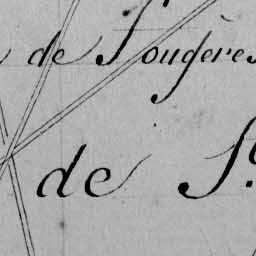 de Fougères
de S.t